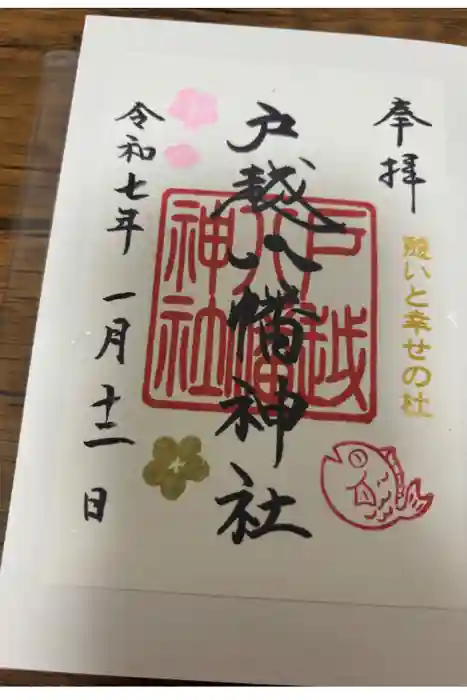 奉拝
願いと幸せの社
戸越八幡神社
戸越八幡神社
令和七年 一月十二日